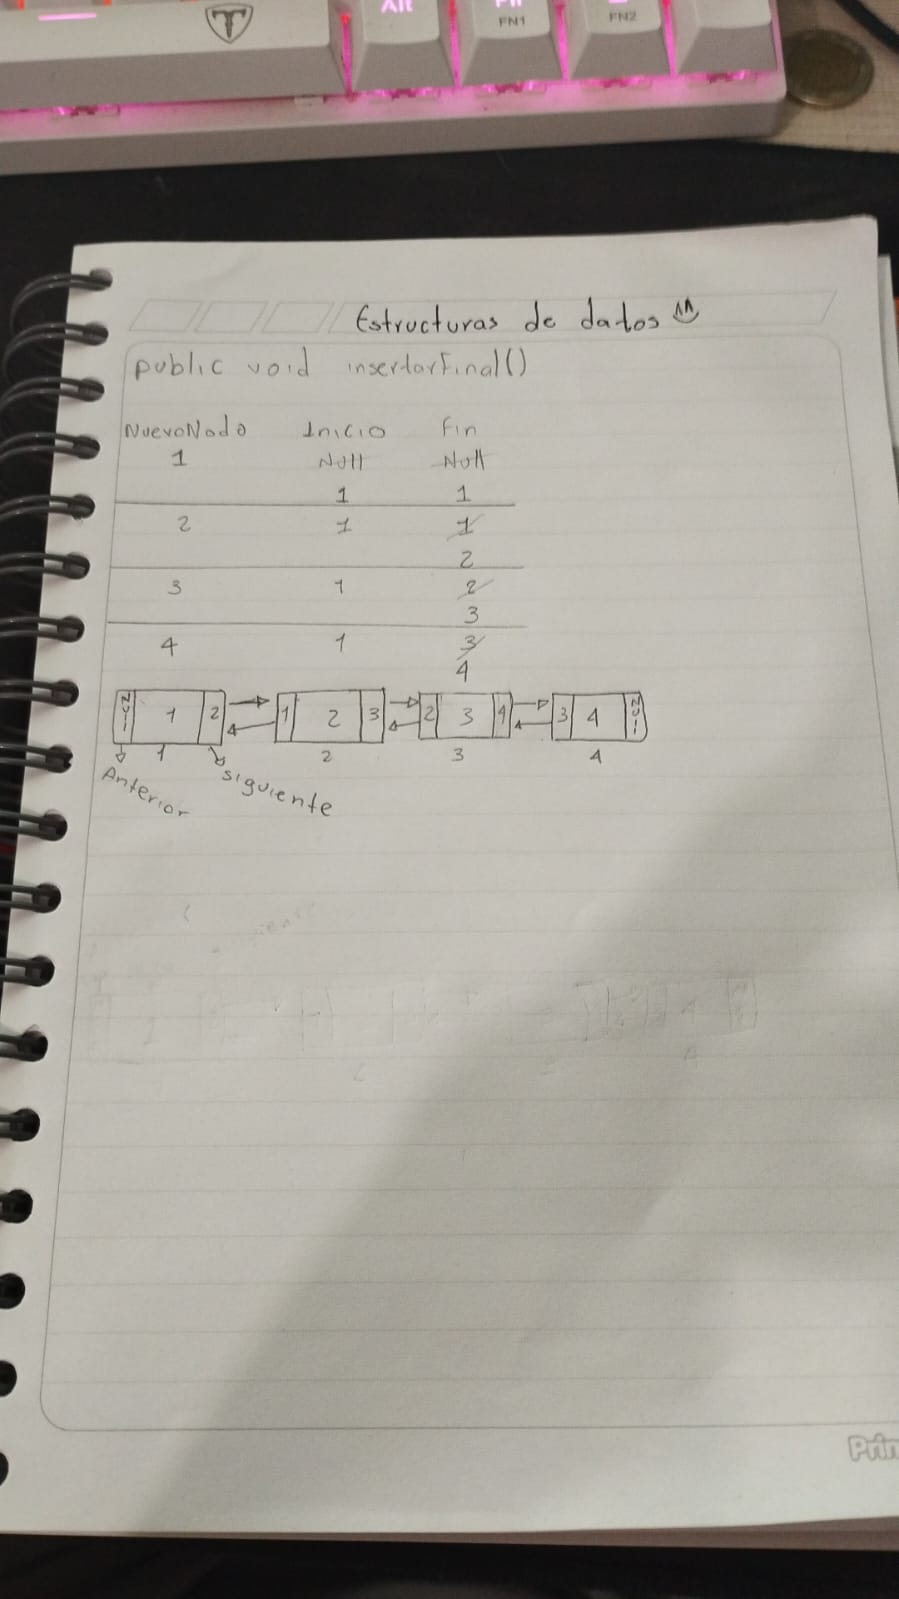 Alt
FN1
FN2
Estructuras de datos
public void insertarFinal()
NuevoNodo Inicio Fin
1 Null Null
1 1
2 1 1
2
3 1 2
3
4 1 3
4
Null 1 2 1 2 3 2 3 4 3 4 Null
1 2 3 4
Anterior siguiente